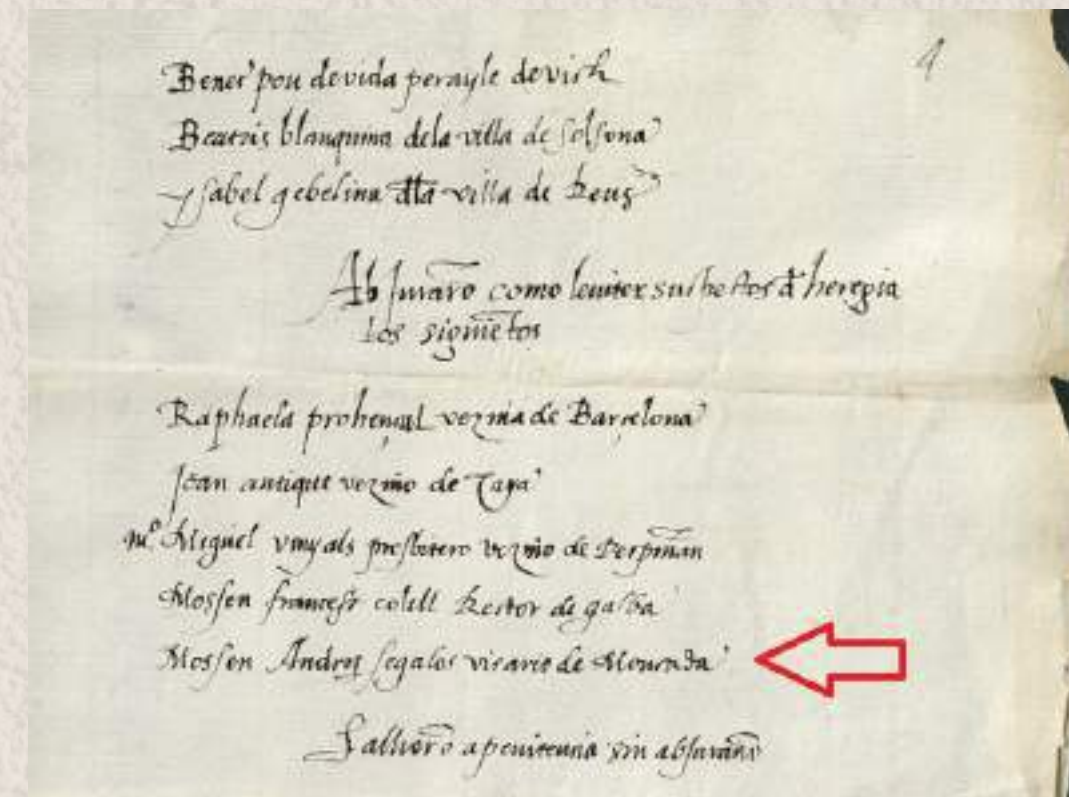 4
Benet pou de vida perayle de vich
Beatris blanquina dela villa de solsona
ysabel gebelina dla villa de Reus
Abjurarō como leuiter suspectos đ heregia
los siguiētes
Raphaela prohençal vezina de Barçelona
Joan antique vezino de
m⁰ Miguel vinyals presbitero vezino de Perpiñan
Mossen francesc colell Rector de
Mossen Andreu segalos vicario de
Sallierō a penitencia sin abjuraciō